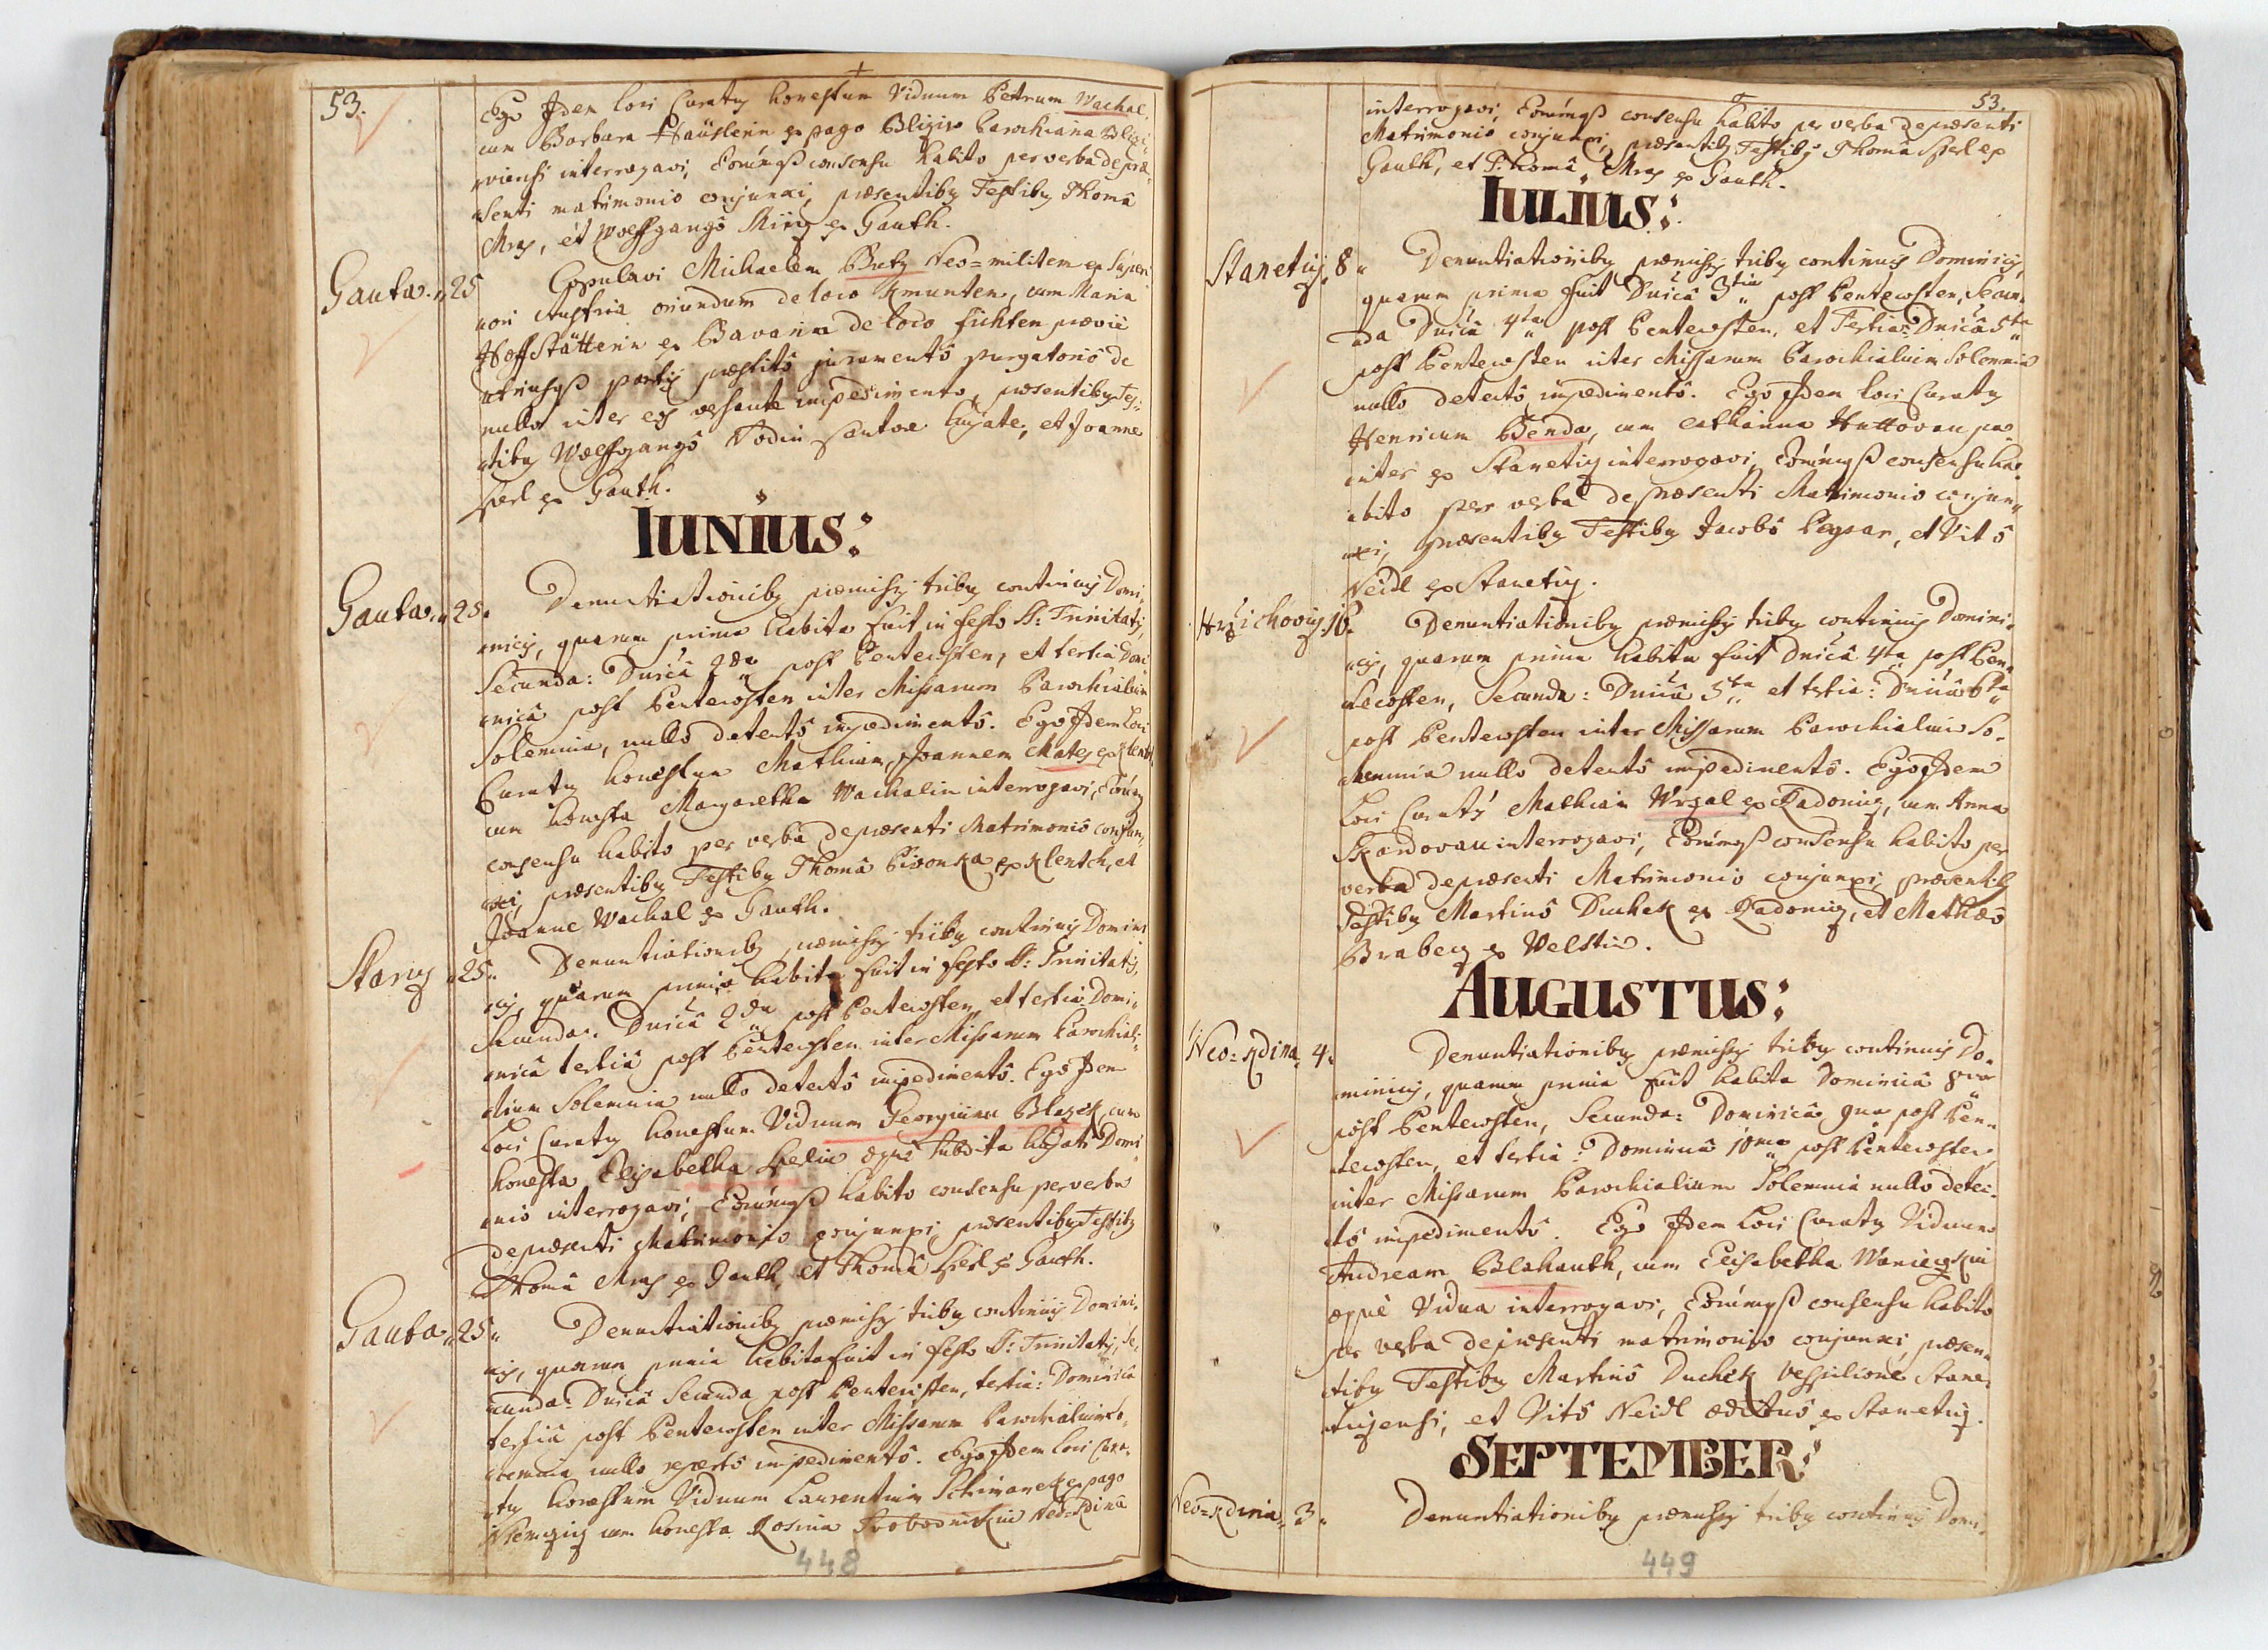 53.
Ego Idem Loci Curatus honestum Viduum Petrum Wachal,
cum Barbara Häuslerin ex pago Blisiwo Parochiana Blisi¬
viensi interrogavi, Eorumqß consensu habito per verba de præ¬
senti matrimonio conjunxi, præsentibus Testibus Thomâ
Mras, et Wolffgangô Kürz ex Gauth.
Gauta. 25 Copulavi Michaelem Butz Neo=militem ex Superi
ori Austria oriundum de loco Kmunten, cum Maria
Hoffstätterin ex Bavaria de loco Fichten præviè
utriusqß partis præstitô juramentô purgatoriô de
nullo inter eos versante impedimento, præsentibus Tes¬
tibus Wolffgangô Vodin Cantore hujate, et Joanne
Sperl ex Gauth.
IUNIUS:
Gauta. 25. Denuntiationibus præmissis tribus continuis Domi¬
nicis, quarum prima habita fuit in festo SS: Trinitatis,
Secunda: Dnicâ 2da post Pentecosten, et tertia Domi
nicâ post Pentecosten inter Missarum Parochialium
Solemnia, nullô detectô impedimentô. Ego Idem Loci
Curatus honestum Mathiam, Joannem Mates ex Klentsch
cum honesta Margaretha Wachalin interrogavi, Eorumqß
consensu habito per verba de præsenti Matrimoniô conjun¬
xi, præsentibus Testibus Thomâ Pivonka ex Klentch, et
Joanne Wachal ex Gauth.
Staris 25. Denuntiationibus præmissis tribus continuis Domini
cis, quarum prima habita fuit in festo SS: Trinitatis,
Secunda: Dnicâ 2da post Pentecosten, et tertia Domi¬
nicâ tertiâ post Pentecosten inter Missarum Parochia¬
lium Solemnia nullo detectô impedimentô. Ego Idem
Loci Curatus honestum Viduum Georgium Blazek, cum
honesta Elisabetha Sperlin æque subdita hujati Domi
nio interrogavi, Eorumqß habito consensu per verba
de præsenti Matrimonio conjunxi, præsentibus Testibus
Thomâ Mras ex Gauth, et Thomâ Sperl ex Gauth.
Gauta. 25. Denuntiationibus præmissis tribus continuis Domini¬
cis, quarum prima habita fuit in festo SS: Trinitatis, Se¬
cunda: Dnicâ Secunda post Pentecosten, tertia: Dominica
tertiâ post Pentecosten inter Missarum Parochialium So¬
lemnia nullo repertô impedimentô. Ego Idem Loci Cura¬
tus honestum Viduum Laurentium Schimanek ex pago
Niemczicz cum honesta Rosina Swobodnikin Neo=Kdina
448
53.
interrogavi, Eorumqß consensu habito per verba de præsenti
Matrimonio conjunxi, præsentibus Testibus Thomâ Sperl ex
Gauth, et Thomâ Mras ex Gauth.
IULIUS:
Stanetiz. 8. Denuntiationibus præmissis tribus continuis Dominicis,
quarum prima fuit Dnicâ 3tia post Pentecosten, Secun¬
da Dnicâ 4ta post Pentecosten, et Tertia: Dnicâ 5ta
post Pentecosten inter Missarum Parochialium Solemnia
nullô detectô impedimentô. Ego Idem Loci Curatus
Henricum Benda, cum Catharina Huttovan pa¬
riter ex Stanetiz interrogavi, Eorumqß consensu ha¬
bito per verba de præsenti Matrimonio conjun¬
xi, præsentibus Testibus Jacobô Pegsar, et Vitô
Neidl ex Stanetiz.
Hrzichoviz 16. Denuntiationibus præmissis tribus continuis Domini¬
cis, quarum prima habita fuit Dnicâ 4ta post Pen¬
tecosten, Secunda: Dnicâ 5ta et tertia: Dnicâ 6ta
post Pentecosten inter Missarum Parochialium So¬
lemnia nullo detectô impedimentô. Ego Idem
Loci Curatus Mathiam Wrzal ex Radoniz, cum Anna
Skardovan interrogavi, Eorumqß consensu habito per
verba de præsenti Matrimonio conjunxi, præsentibus
Testibus Martinô Duchek ex Radoniz, et Mathæô
Brabecz ex Welstin.
AUGUSTUS:
Neo=Kdina. 4. Denuntiationibus præmissis tribus continuis Do¬
minicis, quarum prima fuit habita Dominicâ 8va
post Pentecosten, Secunda: Dominicâ 9na post Pen¬
tecosten, et tertia: Dominicâ 10ma post Pentecosten,
inter Missarum Parochialium Solemnia nullo detec¬
tô impedimentô. Ego Idem Loci Curatus Viduum
Andream Blahauth, cum Elisabetha Waniczkin
æquè Vidua interrogavi, Eorumqß consensu habito
per verba de præsenti matrimonio conjunxi, præsen¬
tibus Testibus Martinô Duchek Vespilione Stane¬
tizensi, et Vitô Neidl ædituô ex Stanetiz.
SEPTEMBER:
Neo=Kdina. 3. Denuntiationibus præmissis tribus continuis Domi¬
449